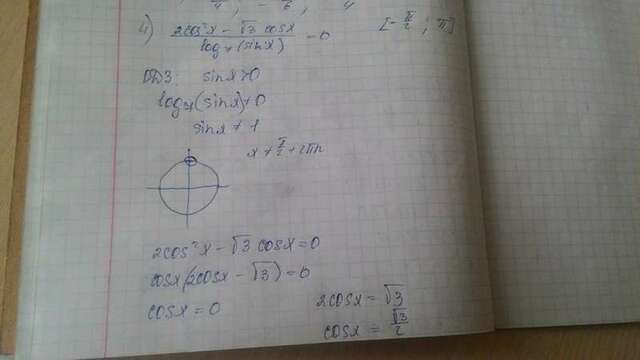 4) (2cos²x − √3 cosx)/(log₇(sinx)) = 0 [−π/2; π]
ОДЗ: sinx>0
log₇(sinx)≠0
sinx ≠ 1
x ≠ π/2 + 2πn
2cos²x − √3 cosx = 0
cosx(2cosx − √3) = 0
cosx = 0 2cosx = √3
cosx = √3/2